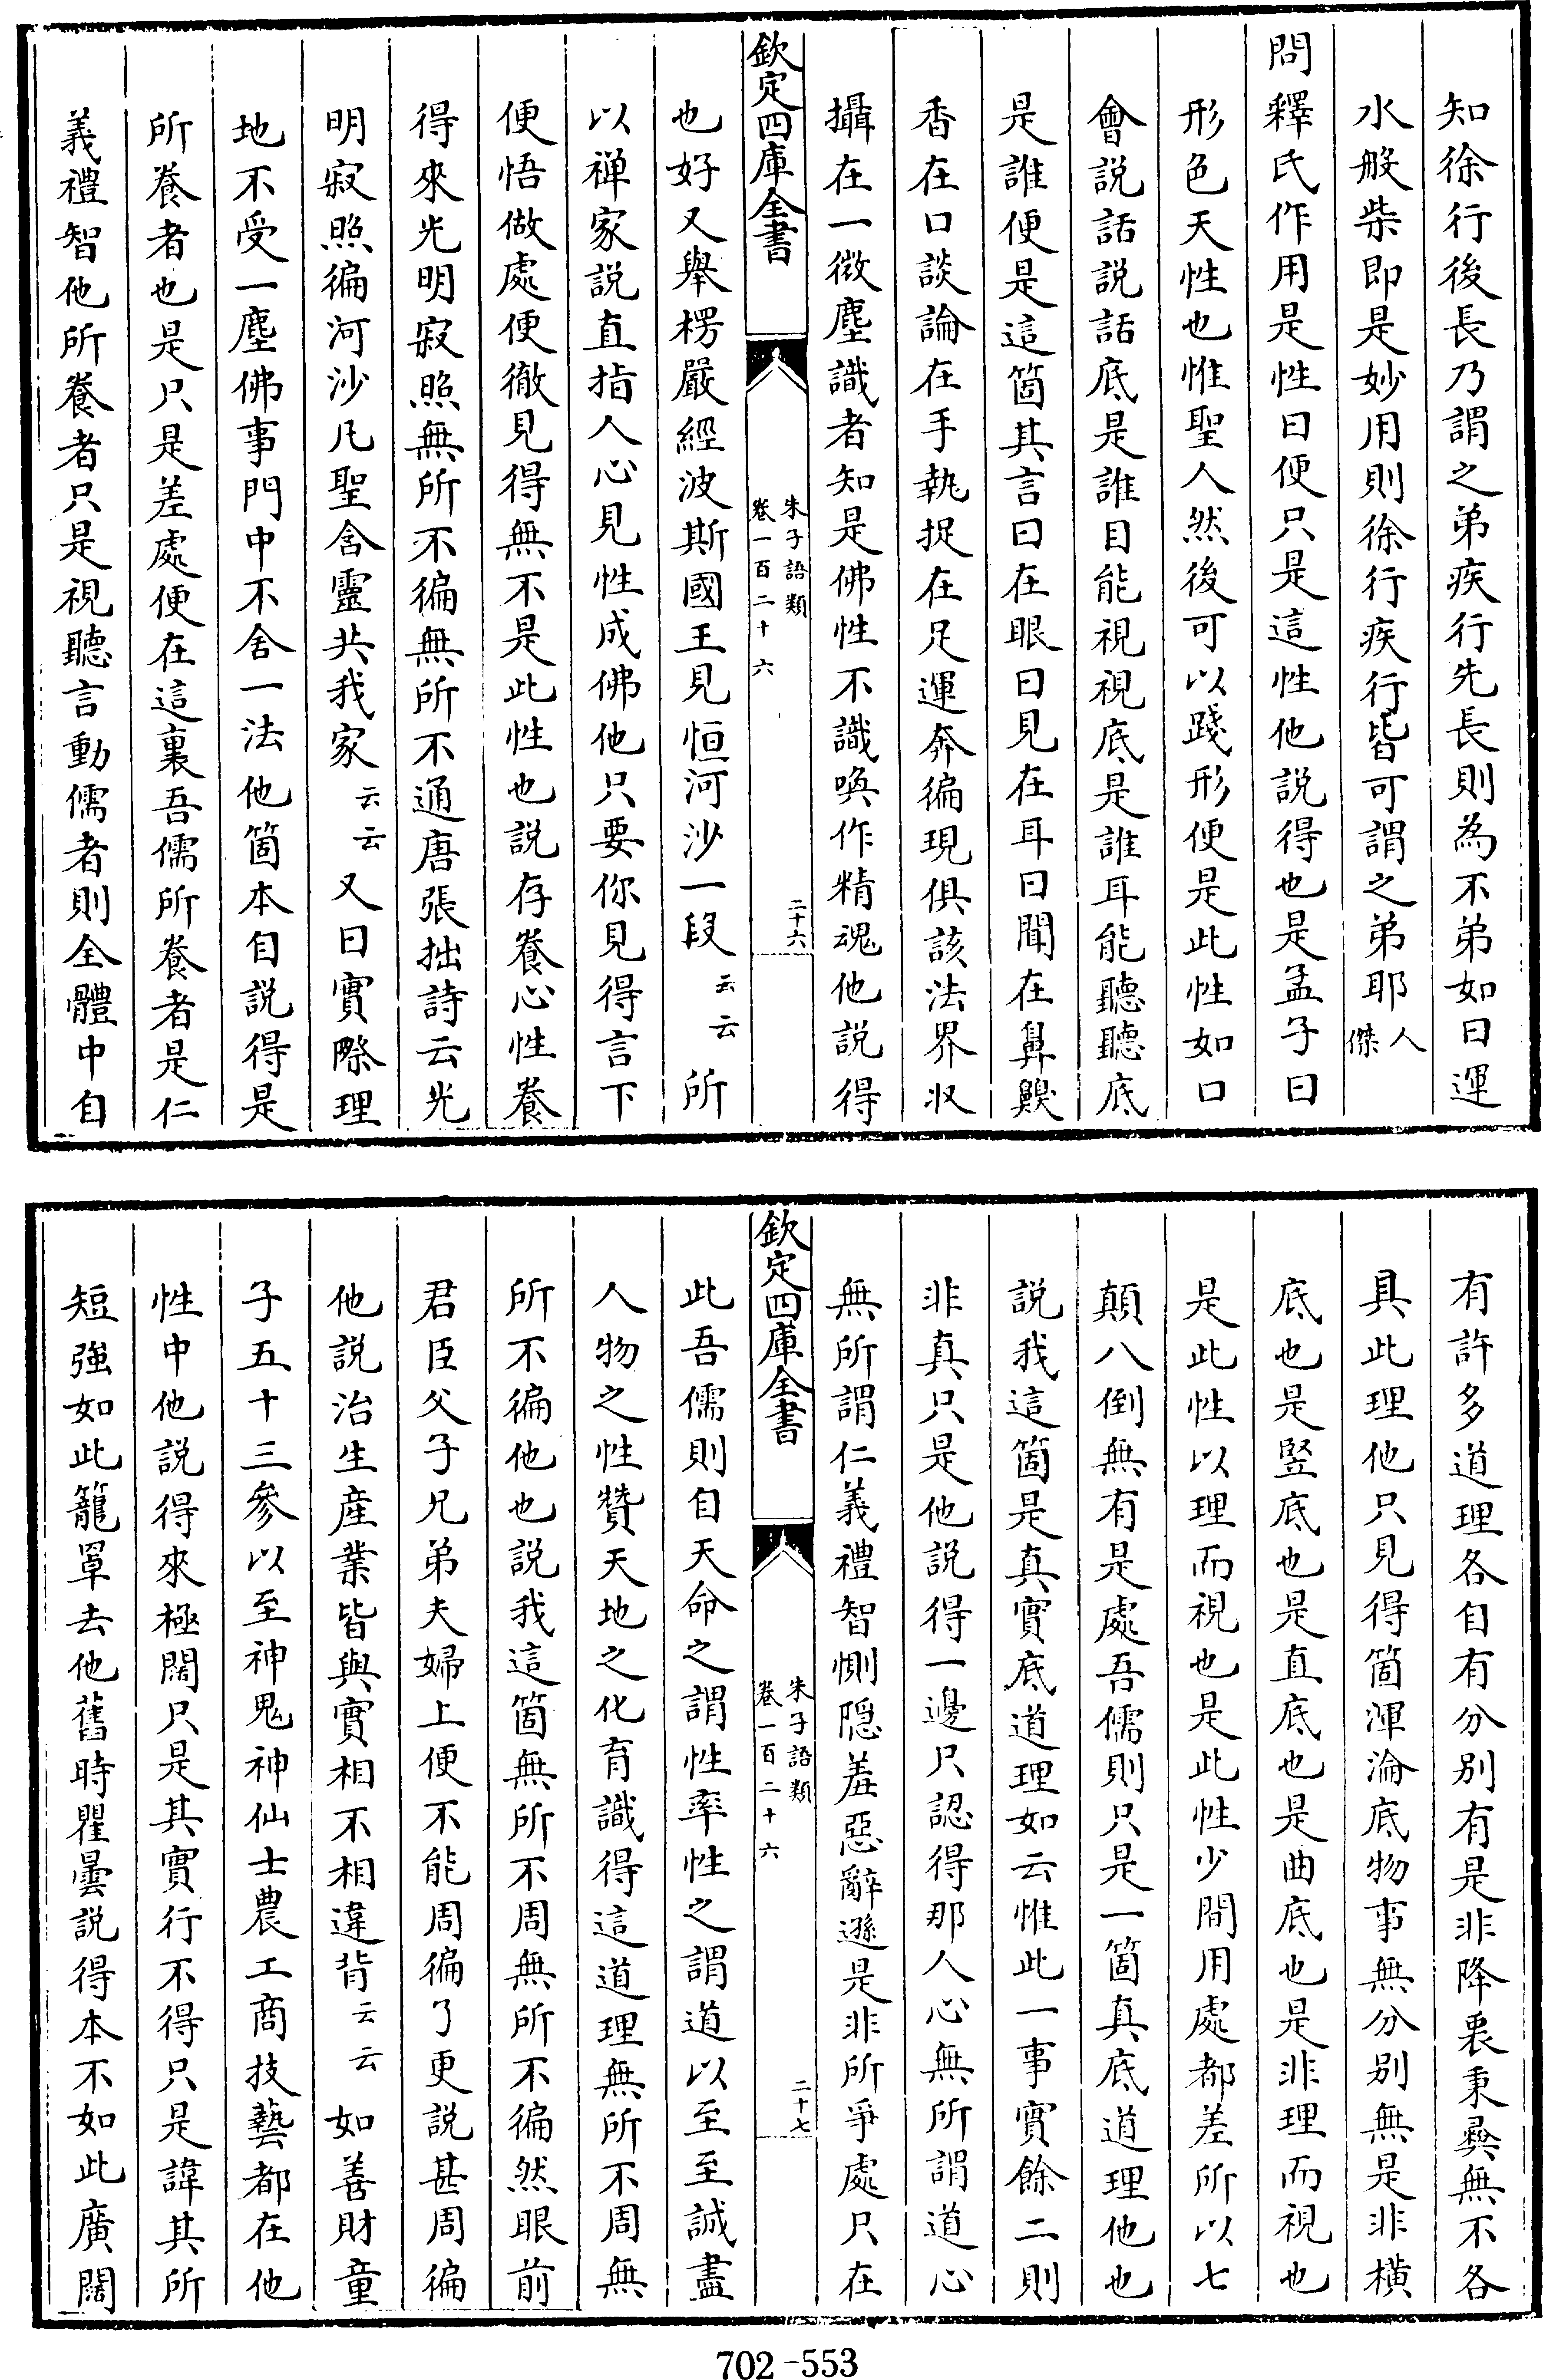 知徐行後長乃謂之弟疾行先長則為不弟如曰運
水般柴即是妙用則徐行疾行皆可謂之弟耶人傑
問釋氏作用是性曰便只是這性他說得也是孟子曰
形色天性也惟聖人然後可以踐形便是此性如口
會說話說話底是誰目能視視底是誰耳能聽聽底
是誰便是這箇其言曰在眼曰見在耳曰聞在鼻齅
香在口談論在手執捉在足運奔徧現俱該法界收
攝在一微塵識者知是佛性不識喚作精魂他說得
欽定四庫全書
朱子語類
卷一百二十六
二十六
也好又舉楞嚴經波斯國王見恒河沙一段云云所
以禪家說直指人心見性成佛他只要你見得言下
便悟做處便徹見得無不是此性也說存養心性養
得來光明寂照無所不徧無所不通唐張拙詩云光
明寂照徧河沙凡聖含靈共我家云云又曰實際理
地不受一塵佛事門中不舍一法他箇本自說得是
所養者也是只是差處便在這裏吾儒所養者是仁
義禮智他所養者只是視聽言動儒者則全體中自
有許多道理各自有分别有是非降衷秉彞無不各
具此理他只見得箇渾淪底物事無分别無是非橫
底也是竪底也是直底也是曲底也是非理而視也
是此性以理而視也是此性少間用處都差所以七
顛八倒無有是處吾儒則只是一箇真底道理他也
說我這箇是真實底道理如云惟此一事實餘二則
非真只是他說得一邊只認得那人心無所謂道心
無所謂仁義禮智惻隠羞惡辭遜是非所爭處只在
欽定四庫全書
朱子語類
卷一百二十六
二十七
此吾儒則自天命之謂性率性之謂道以至至誠盡
人物之性贊天地之化育識得這道理無所不周無
所不徧他也說我這箇無所不周無所不徧然眼前
君臣父子兄弟夫婦上便不能周徧了更說甚周徧
他說治生產業皆與實相不相違背云云如善財童
子五十三參以至神鬼神仙士農工商技藝都在他
性中他說得來極闊只是其實行不得只是諱其所
短強如此籠罩去他舊時瞿曇說得本不如此廣闊
702-553